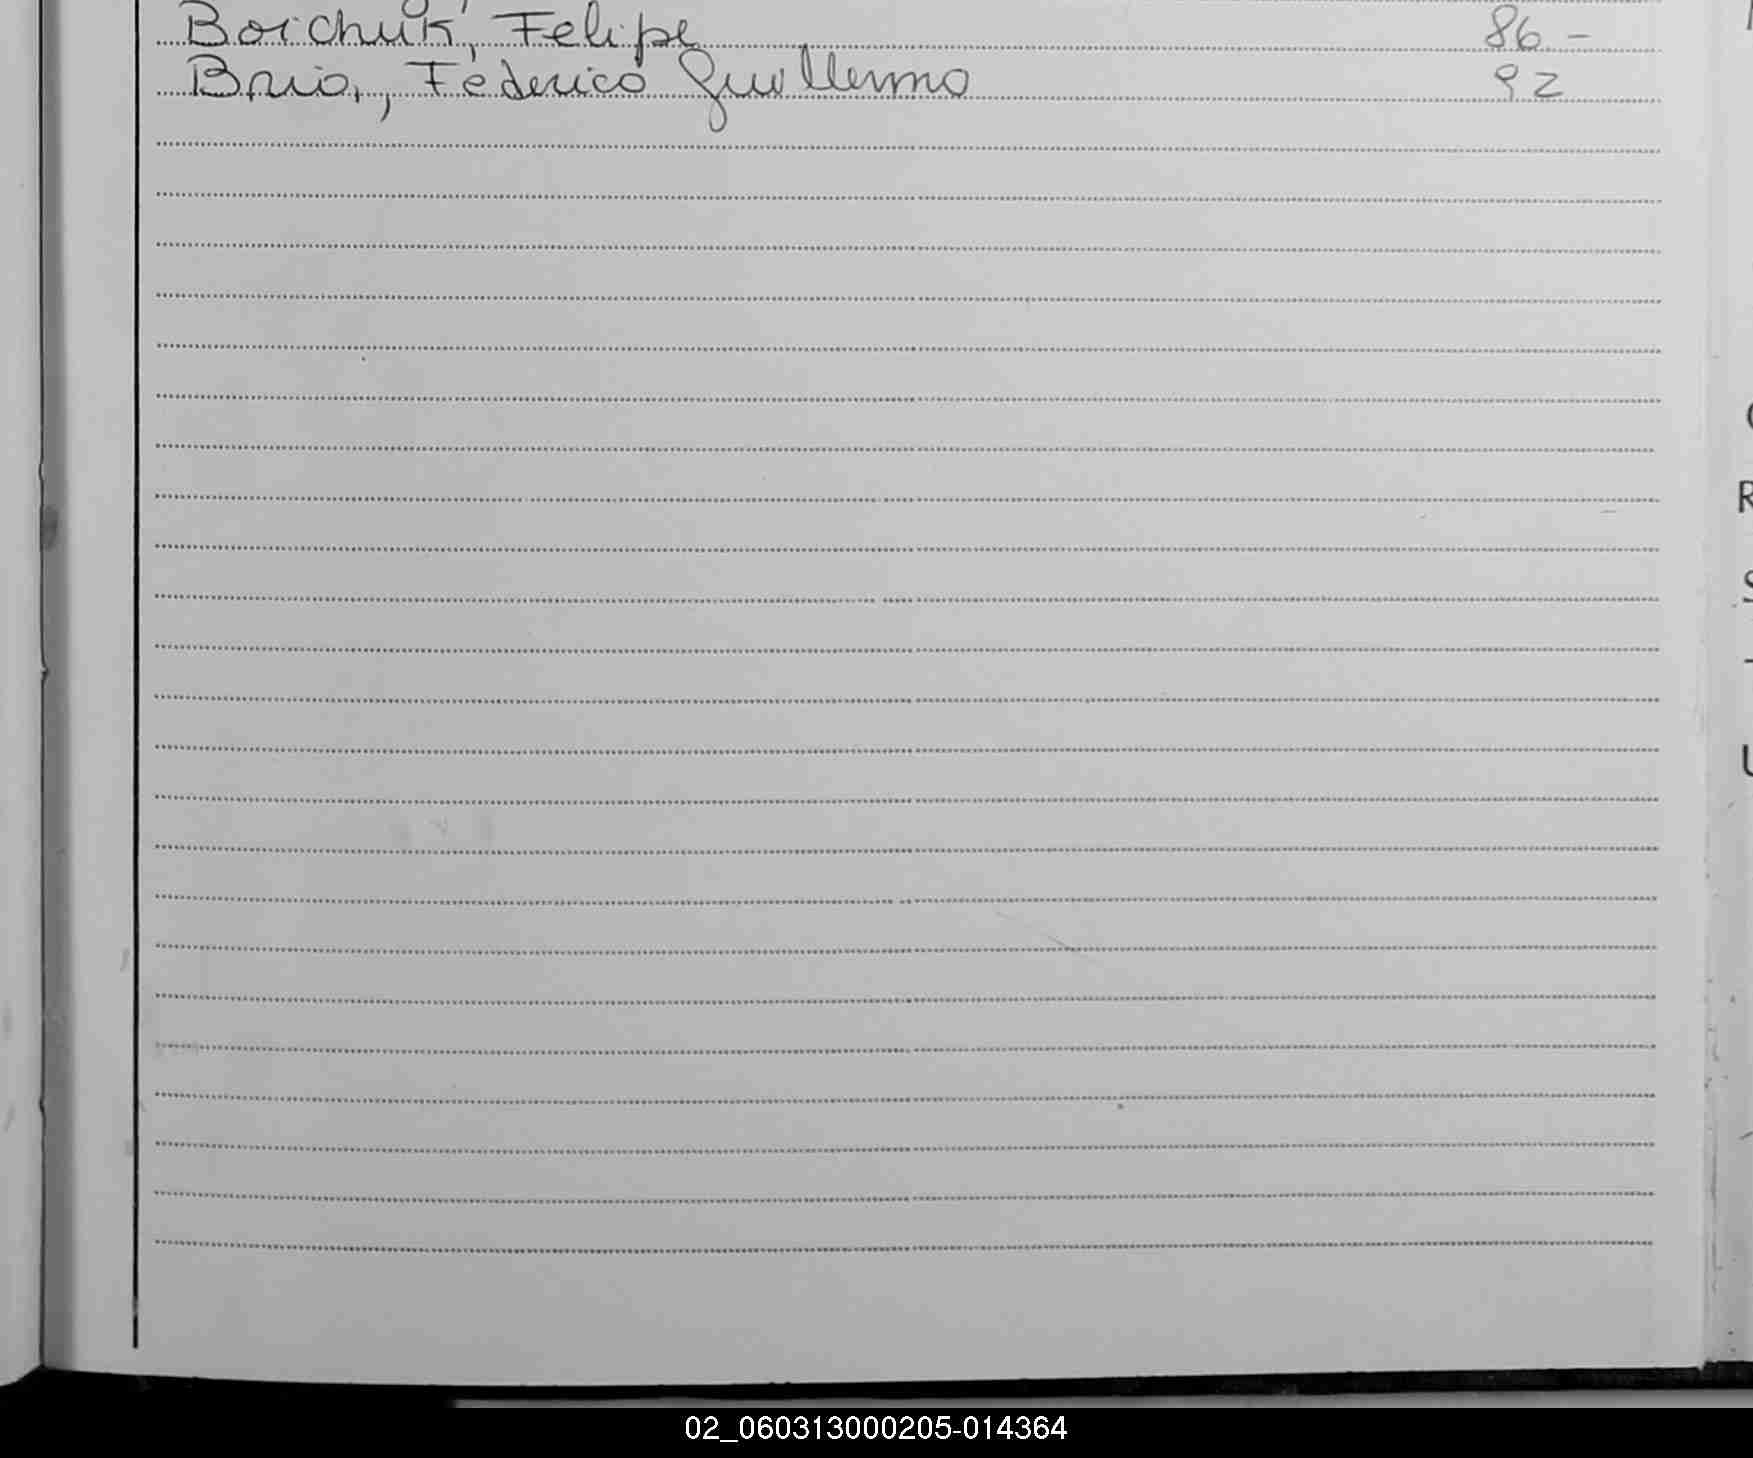 Boichuk, Felipe 86 -
Brio, Federico Guillermo 92
R
S
T
U
02_060313000205-014364